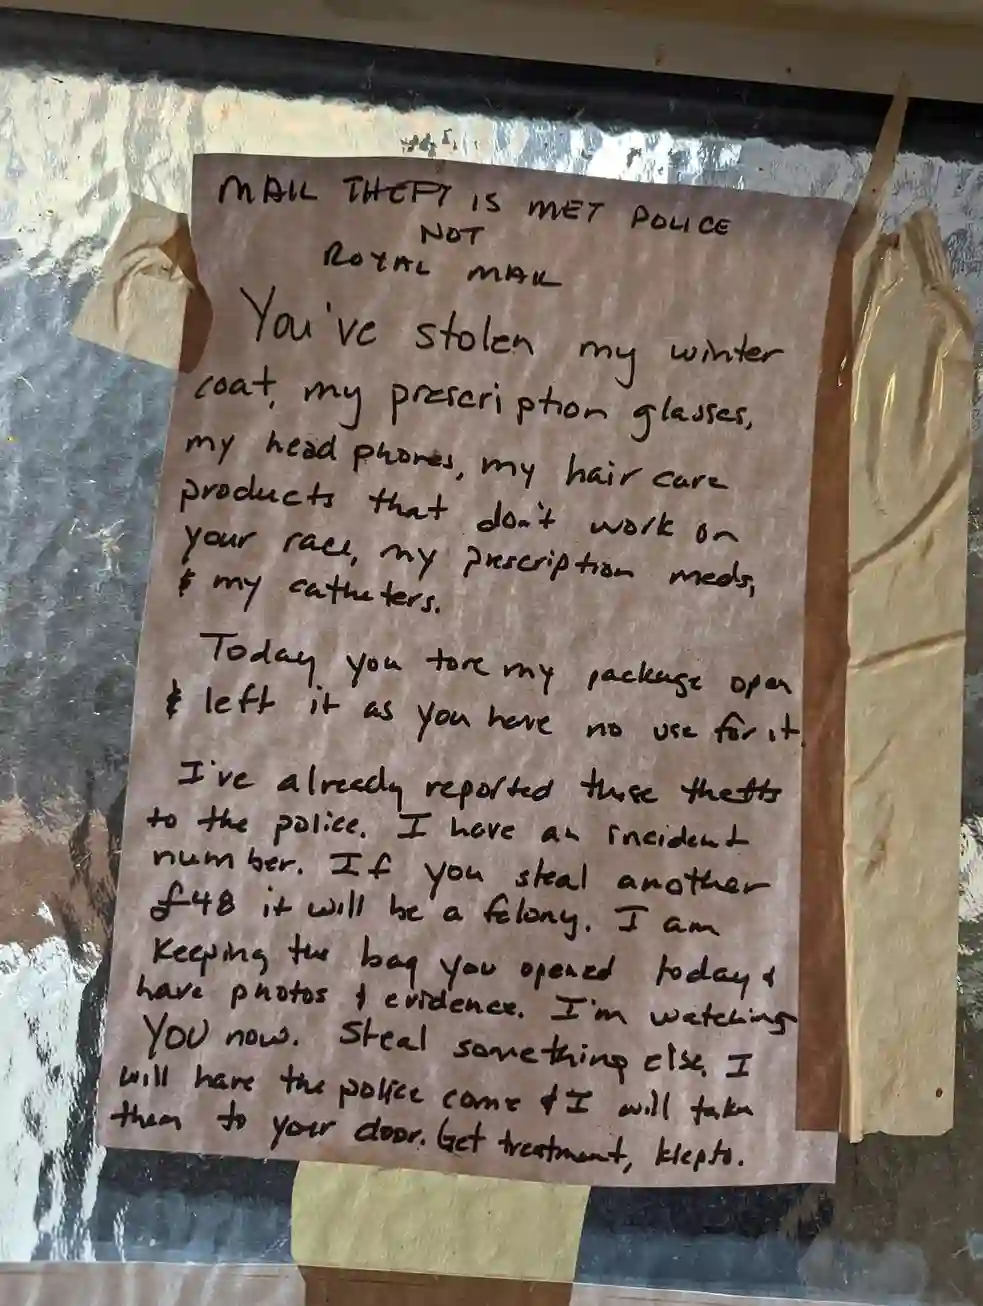 MAIL THEFT IS MET POLICE
NOT
ROYAL MAIL
You've stolen my winter
coat, my prescription glasses,
my head phones, my hair care
products that don't work on
your race, my prescription meds,
& my catheters.
Today you tore my package open
& left it as you have no use for it.
I've already reported these thefts
to the police. I have an incident
number. If you steal another
£48 it will be a felony. I am
keeping the bag you opened today &
have photos & evidence. I'm watching
YOU now. Steal something else, I
will have the police come & I will take
them to your door. Get treatment, klepto.